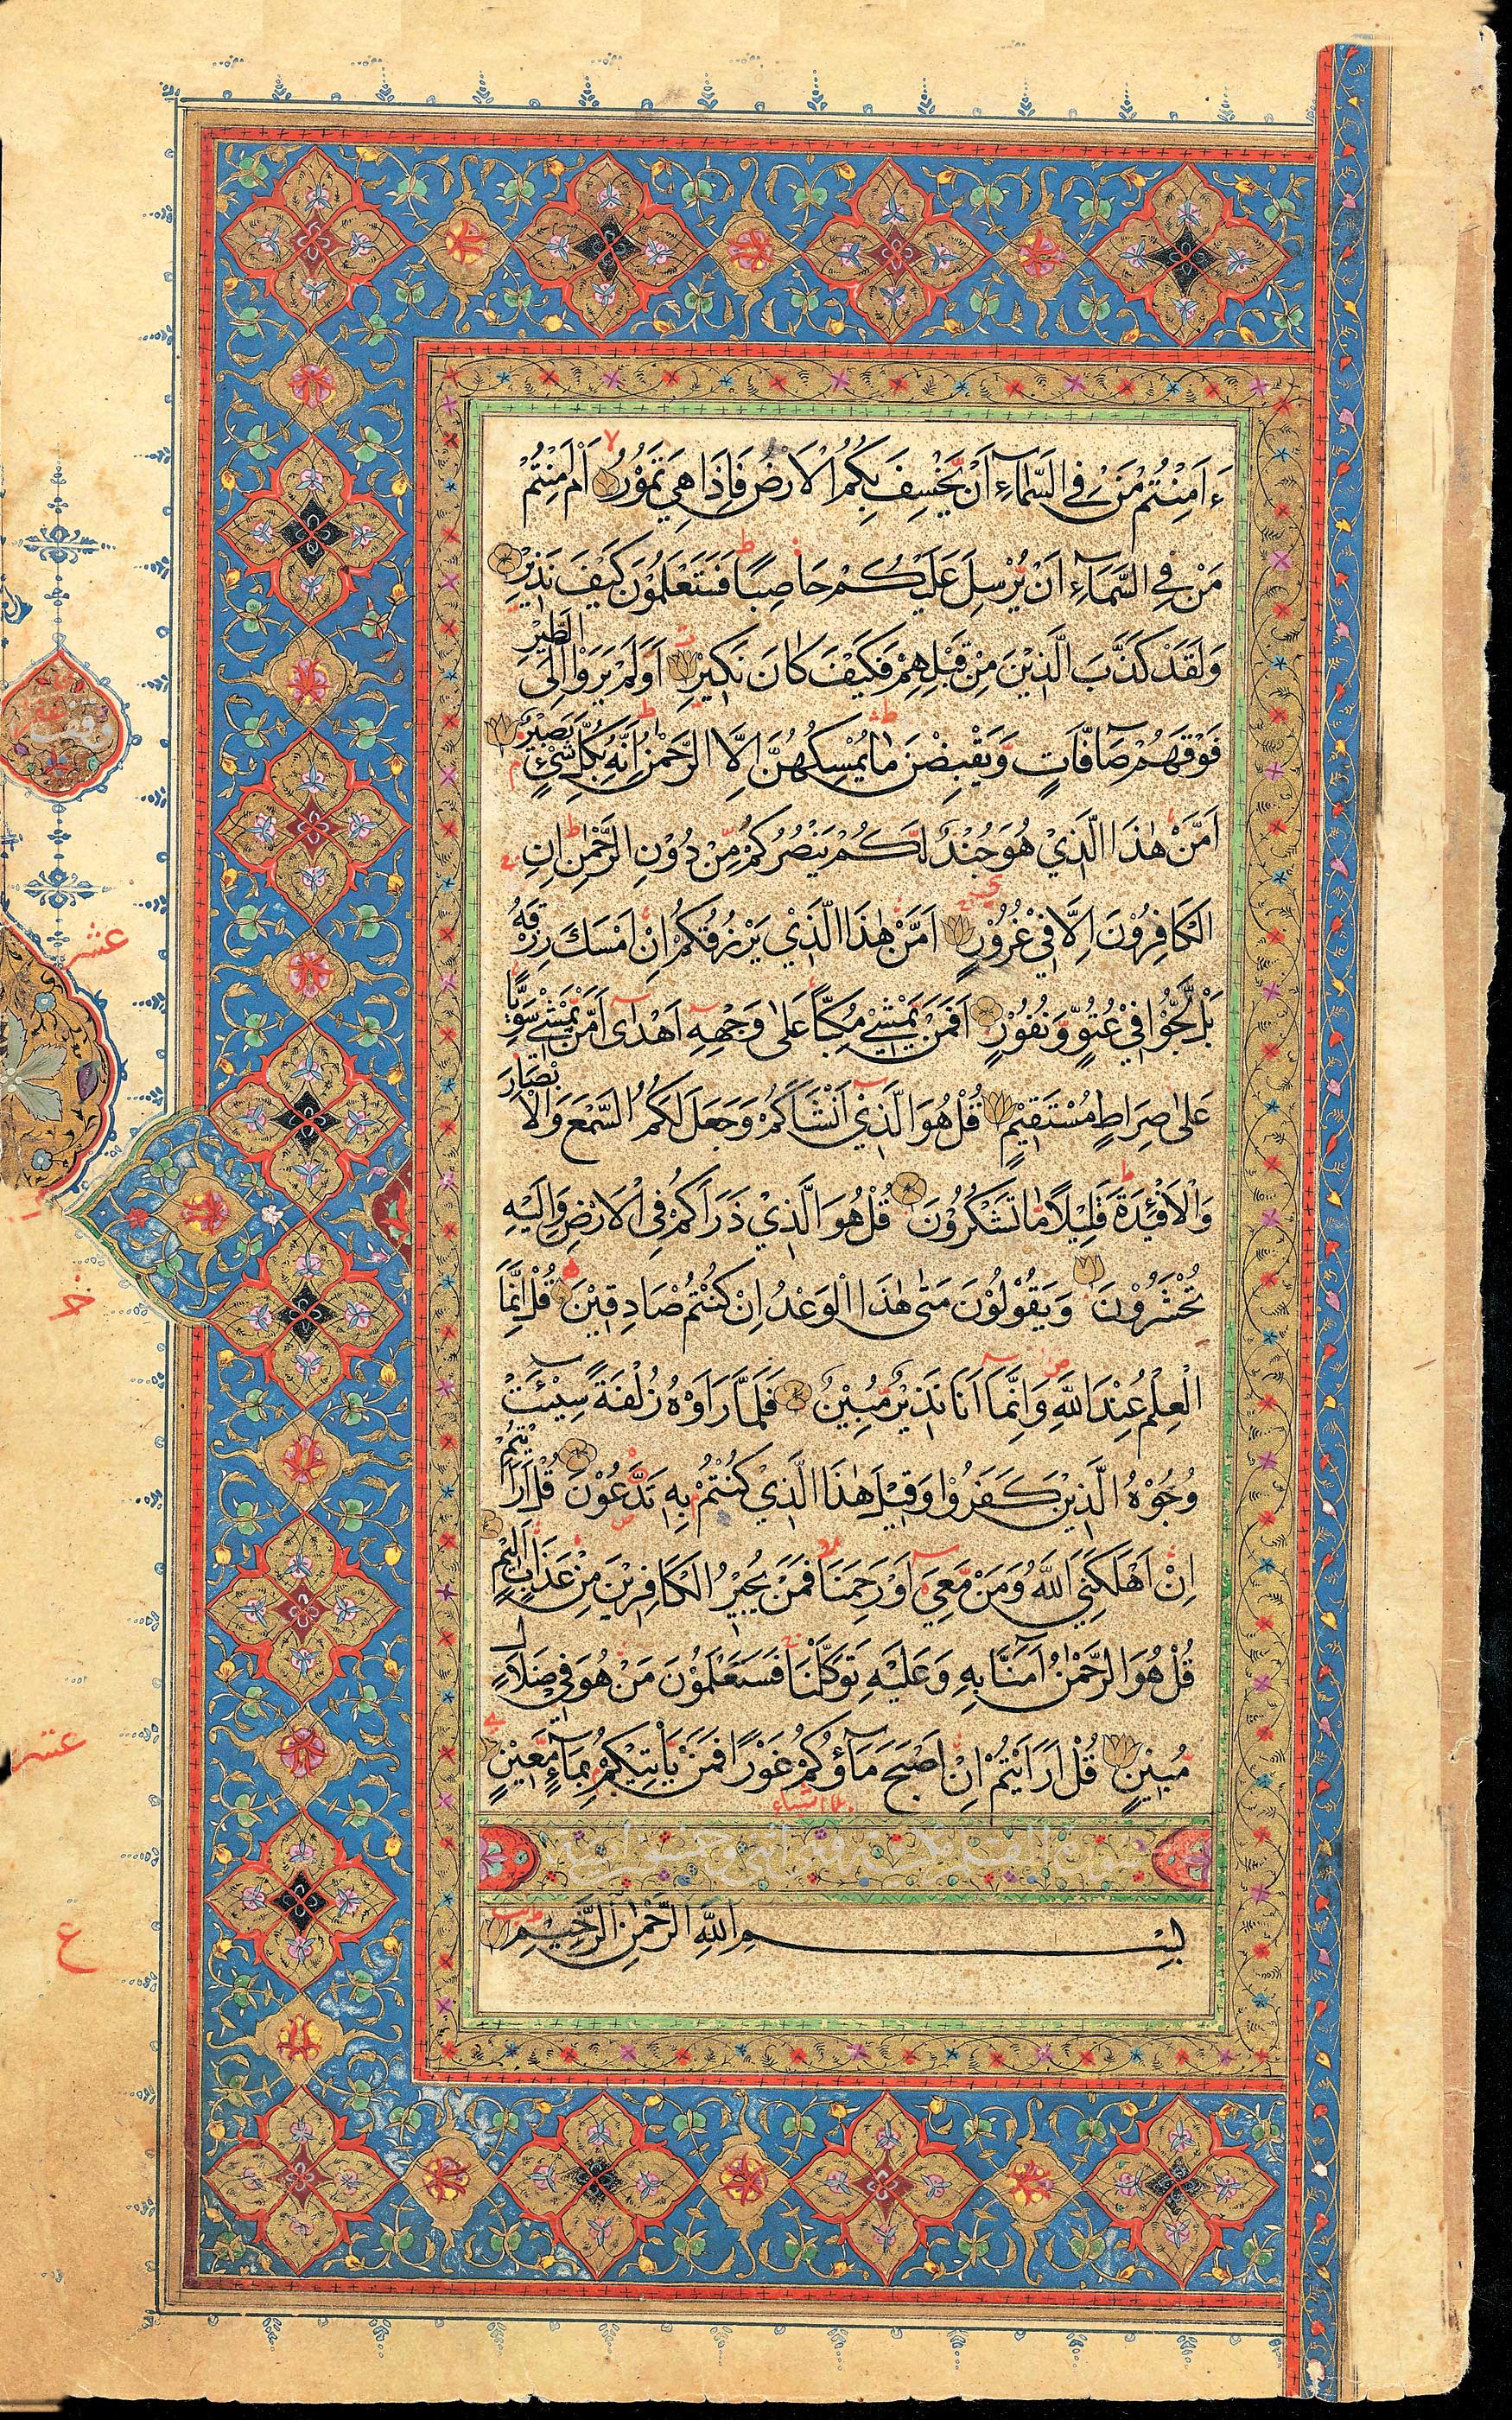 ءَاَمِنْتُمْ مَنْ فِي السَّمَآءِ اَنْ يَّخْسِفَ بِكُمُ الْاَرْضَ فَاِذَا هِيَ تَمُوْرُ اَمْ اَمِنْتُمْ
مَنْ فِي السَّمَآءِ اَنْ يُّرْسِلَ عَلَيْكُمْ حَاصِبًا فَسَتَعْلَمُوْنَ كَيْفَ نَذِيْرِ
وَلَقَدْ كَذَّبَ الَّذِيْنَ مِنْ قَبْلِهِمْ فَكَيْفَ كَانَ نَكِيْرِ اَوَلَمْ يَرَوْا اِلَى الطَّيْرِ
فَوْقَهُمْ صَآفَّاتٍ وَّيَقْبِضْنَ مَا يُمْسِكُهُنَّ اِلَّا الرَّحْمٰنُ اِنَّهٗ بِكُلِّ شَيْءٍ بَصِيْرٌ
اَمَّنْ هٰذَا الَّذِيْ هُوَ جُنْدٌ لَّكُمْ يَنْصُرُكُمْ مِّنْ دُوْنِ الرَّحْمٰنِ اِنِ
الْكَافِرُوْنَ اِلَّا فِيْ غُرُوْرٍ اَمَّنْ هٰذَا الَّذِيْ يَرْزُقُكُمْ اِنْ اَمْسَكَ رِزْقَهٗ
بَلْ لَّجُّوْا فِيْ عُتُوٍّ وَّنُفُوْرٍ اَفَمَنْ يَّمْشِيْ مُكِبًّا عَلٰى وَجْهِهٖ اَهْدٰى اَمَّنْ يَّمْشِيْ سَوِيًّا
عَلٰى صِرَاطٍ مُسْتَقِيْمٍ قُلْ هُوَ الَّذِيْ اَنْشَاَكُمْ وَجَعَلَ لَكُمُ السَّمْعَ وَالْاَبْصَارَ
وَالْاَفْئِدَةَ قَلِيْلًا مَّا تَشْكُرُوْنَ قُلْ هُوَ الَّذِيْ ذَرَاَكُمْ فِي الْاَرْضِ وَاِلَيْهِ
تُحْشَرُوْنَ وَيَقُوْلُوْنَ مَتٰى هٰذَا الْوَعْدُ اِنْ كُنْتُمْ صَادِقِيْنَ قُلْ اِنَّمَا
الْعِلْمُ عِنْدَ اللّٰهِ وَاِنَّمَآ اَنَا نَذِيْرٌ مُّبِيْنٌ فَلَمَّا رَاَوْهُ زُلْفَةً سِيْٓئَتْ
وُجُوْهُ الَّذِيْنَ كَفَرُوْا وَقِيْلَ هٰذَا الَّذِيْ كُنْتُمْ بِهٖ تَدَّعُوْنَ قُلْ اَرَاَيْتُمْ
اِنْ اَهْلَكَنِيَ اللّٰهُ وَمَنْ مَّعِيَ اَوْ رَحِمَنَا فَمَنْ يُّجِيْرُ الْكَافِرِيْنَ مِنْ عَذَابٍ اَلِيْمٍ
قُلْ هُوَ الرَّحْمٰنُ اٰمَنَّا بِهٖ وَعَلَيْهِ تَوَكَّلْنَا فَسَتَعْلَمُوْنَ مَنْ هُوَ فِيْ ضَلَالٍ
مُّبِيْنٍ قُلْ اَرَاَيْتُمْ اِنْ اَصْبَحَ مَآؤُكُمْ غَوْرًا فَمَنْ يَّاْتِيْكُمْ بِمَآءٍ مَّعِيْنٍ
بِسْمِ اللّٰهِ الرَّحْمٰنِ الرَّحِيْمِ
عشر
عشر
ع